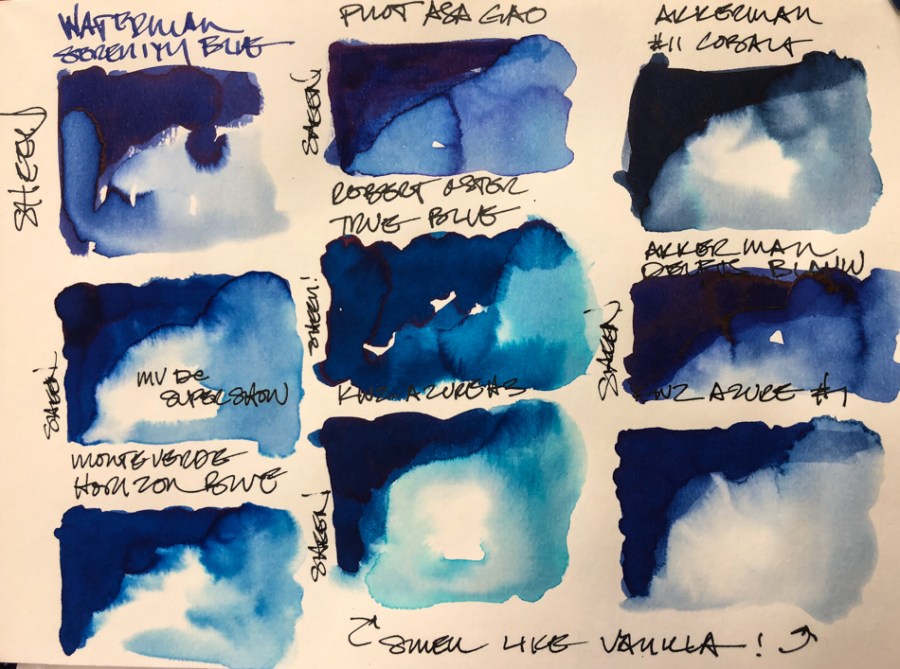 WATERMAN
SERENITY BLUE
SHEEN!
MV DC
SUPERSHOW
SHEEN
MONTEVERDE
HORIZON BLUE
PILOT ASA GAO
SHEEN!
ROBERT OSTER
TRUE BLUE
SHEEN!
KWZ AZURE #3
SHEEN!
AKKERMAN
#11 COBALT
AKKERMAN
DELFTS BLAUW
SHEEN!
KWZ AZURE #1
SMELL LIKE VANILLA!